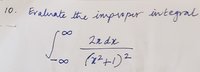 10. Evaluate the improper integral
∫_{-∞}^{∞} 2x dx / (x²+1)²